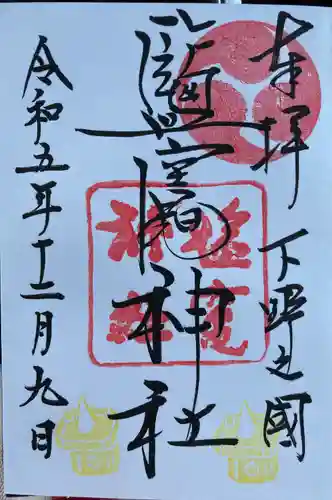 奉拝
下野之國
鹽竈神社
令和五年十二月九日